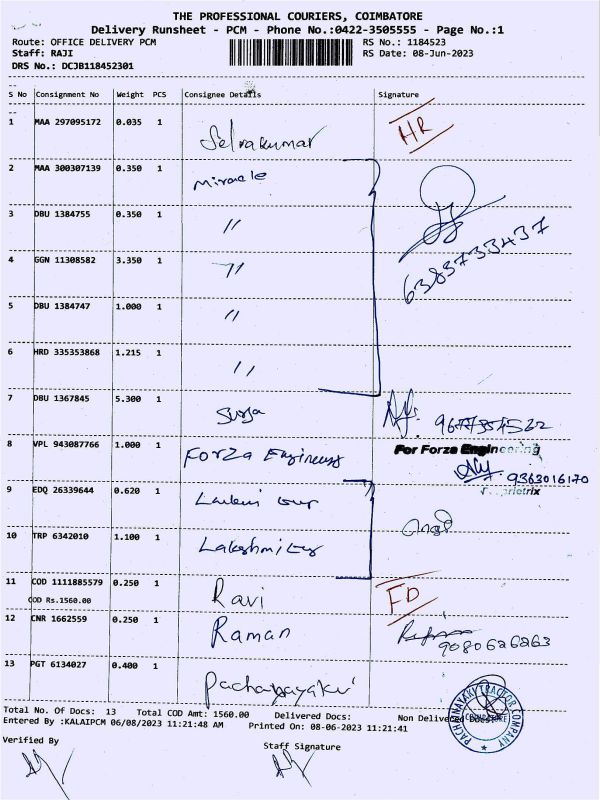 THE PROFESSIONAL COURIERS, COIMBATORE
Delivery Runsheet - PCM - Phone No.:0422-3505555 - Page No.:1
Route: OFFICE DELIVERY PCM RS No.: 1184523
Staff: RAJI RS Date: 08-Jun-2023
DRS No.: DCJB118452301
S No Consignment No Weight PCS Consignee Details Signature
1 MAA 297095172 0.035 1 Selvakumar HR
2 MAA 300307139 0.350 1 Miracle
3 DBU 1384755 0.350 1 "
6383733437
4 GGN 11308582 3.350 1 "
5 DBU 1384747 1.000 1 "
6 HRD 335353868 1.215 1 "
7 DBU 1367845 5.300 1 Surya
8 VPL 943087766 1.000 1 Forza For Forza Engineering
9363016170
9 EDQ 26339644 0.620 1
10 TRP 6342010 1.100 1 Lakshmi
11 COD 1111885579 0.250 1 Ravi FD
COD Rs.1560.00
12 CNR 1662559 0.250 1 Raman 9080626263
13 PGT 6134027 0.400 1
PACHANAYAKI TRACTOR COMPANY
COIMBATORE
Total No. Of Docs: 13 Total COD Amt: 1560.00 Delivered Docs: Non Delivered Docs:
Entered By :KALAIPCM 06/08/2023 11:21:48 AM Printed On: 08-06-2023 11:21:41
Verified By Staff Signature